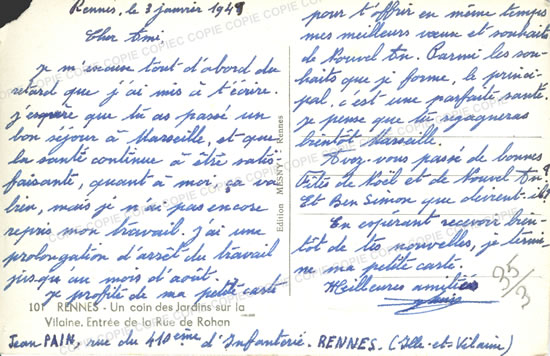 Rennes, le 3 janvier 1949
Cher Ami,
Je m'excuse tout d'abord du
retard que j'ai mis à t'écrire.
J'espère que tu as passé un
bon séjour à Marseille, et que
ta santé continue à être satis
faisante, quant à moi, ça va
bien, mais je n'ai pas encore
repris mon travail. J'ai une
prolongation d'arrêt du travail
jusqu'au mois d'août.
Je profite de ma petite carte
101 RENNES - Un coin des Jardins sur la
Vilaine. Entrée de la Rue de Rohan
Edition MESNY - Rennes
pour t'offrir en même temps
mes meilleurs vœux et souhaits
de Nouvel An. Parmi les sou-
haits que je forme, le princi-
pal, c'est une parfaite santé.
Je pense que tu regagneras
bientôt Marseille.
Avez-vous passé de bonnes
Fêtes de Noël et de Nouvel An?
Et Ben Simon que devient-il?
En espérant recevoir bien-
tôt de tes nouvelles, je termi-
ne ma petite carte.
Meilleures amitiés
35/3
Jean PAIN, rue du 410ème d'Infanterie. RENNES. (Ille-et-Vilaine)
COPIE COPIE COPIE COPIE COPIE